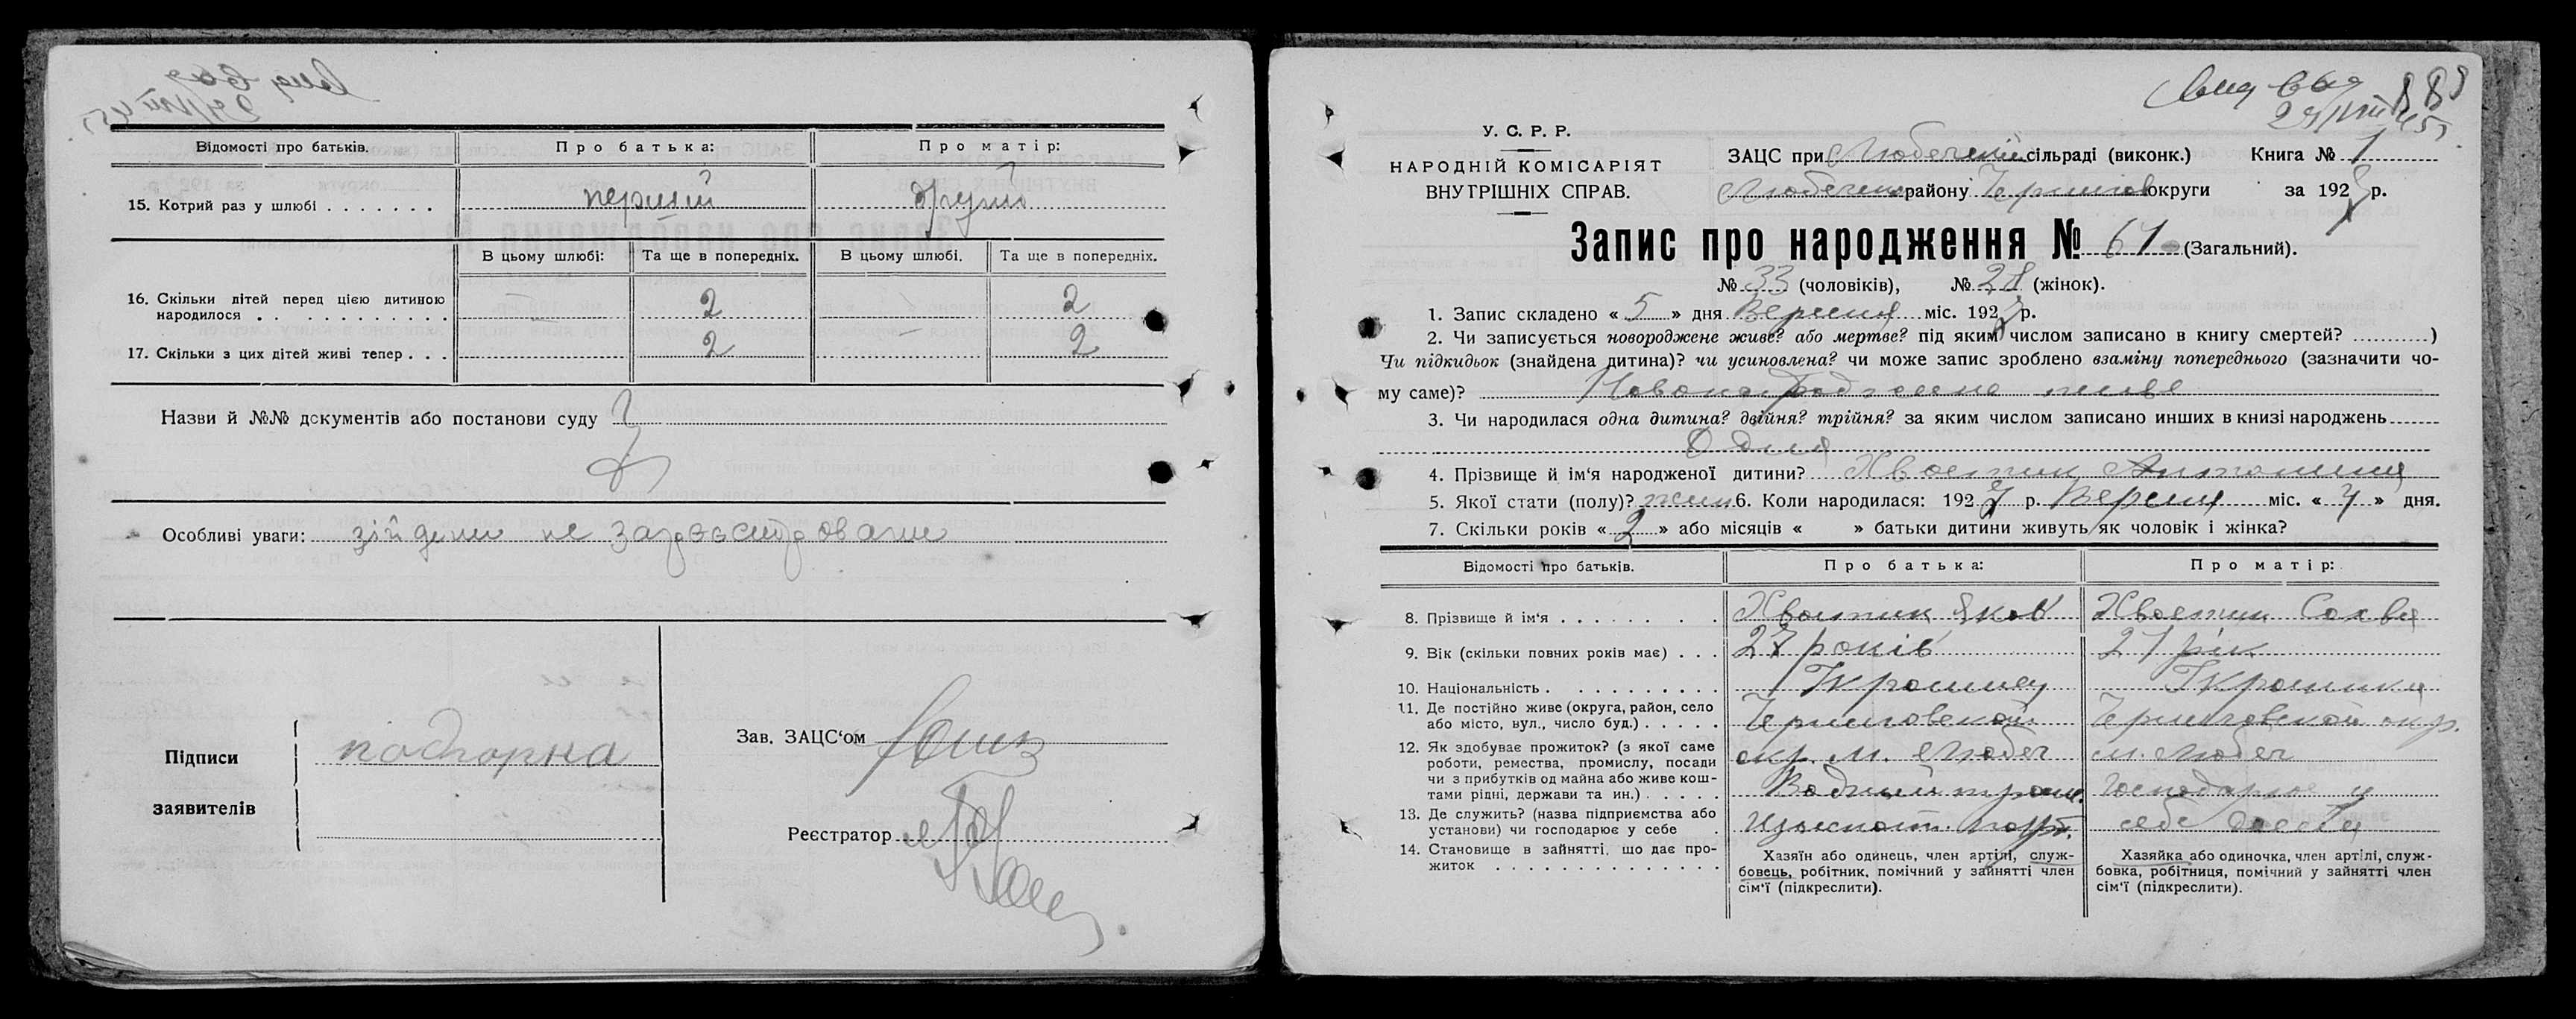 Відомості про батьків. Про батька: Про матір:
15. Котрий раз у шлюбі . . . . . . . перший другий
В цьому шлюбі: Та ще в попередніх. В цьому шлюбі. Та ще в попередніх.
16. Скільки дітей перед цією дитиною
народилося . . . . . . . . . . . — 2 — 2
17. Скільки з цих дітей живі тепер . . . 2 — 2
Назви й №№ документів або постанови суду
Особливі уваги: зійдени не зарэєстровани
Підписи
заявителів
подгорна
Зав. ЗАЦС'ом
Реєстратор
888
У. С. Р. Р.
НАРОДНІЙ КОМІСАРІЯТ
ВНУТРІШНІХ СПРАВ.
ЗАЦС при Любечській сільраді (виконк.) Книга № 1
Любечськ району Чернігов округи за 1927 р.
Запис про народження № 61 (Загальний).
№ 33 (чоловіків), № 28 (жінок).
1. Запис складено « 5 » дня Вересня міс. 1927 р.
2. Чи записується новороджене живе? або мертве? під яким числом записано в книгу смертей? ...........)
Чи підкидьок (знайдена дитина)? чи усиновлена? чи може запис зроблено взаміну попереднього (зазначити чо-
му саме)? Новонароджена живе
3. Чи народилася одна дитина? двійня? трійня? за яким числом записано инших в книзі народжень
Одна
4. Прізвище й ім'я народженої дитини? Хвостик Антонина
5. Якої стати (полу)? жин 6. Коли народилася: 1927 р. Вересня міс. « 4 » дня.
7. Скільки років « 2 » або місяців « » батьки дитини живуть як чоловік і жінка?
Відомості про батьків. Про батька: Про матір:
8. Прізвище й ім'я . . . . . . . . Хвостик Яков Хвостик Софья
9. Вік (скільки повних років має) . . . 27 років 21 рік
10. Національність . . . . . . . . . . Украинец Украинка
11. Де постійно живе (округа, район, село
або місто, вул., число буд.) . . . . . Черниговской Черниговской окр.
12. Як здобуває прожиток? (з якої саме
роботи, ремества, промислу, посади окр. м. Любеч м. Любеч
чи з прибутків од майна або живе кош-
тами рідні, держави та ин.) . . . . . Водный трансп. господарює у
13. Де служить? (назва підприємства або
установи) чи господарює у себе . себе
14. Становище в зайнятті, що дає про-
житок . . . . . . . . . . . . . .
Хазяїн або одинець, член артілі, служ-
бовець, робітник, помічний у зайнятті член
сім'ї (підкреслити).
Хазяйка або одиночка, член артілі, служ-
бовка, робітниця, помічний у зайнятті член
сім'ї (підкреслити).